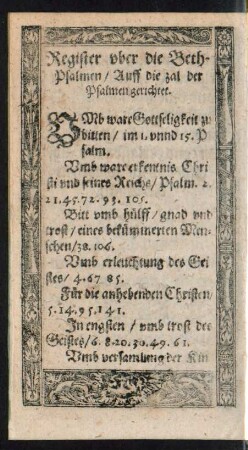 Register vber die Beth-
Psalmen / Auff die zal der
Psalmen gerichtet.
VMb ware Gottseligkeit zu
bitten / im 1. vnnd 15. P
salm.
Vmb ware erkentnis Chri
sti vnd seines Reichs / Psalm. 2.
21.45.72.93.105.
Bitt vmb hülff / gnad vnd
trost / eines bekümmerten Men-
schen / 38.106.
Vmb erleuchtung des Gei
stes / 4.67 85.
Für die anhebenden Christen /
5.14.95.141.
In engsten / vmb trost des
Geistes / 6.8.20.30.49.61.
Vmb versamlung der Kin